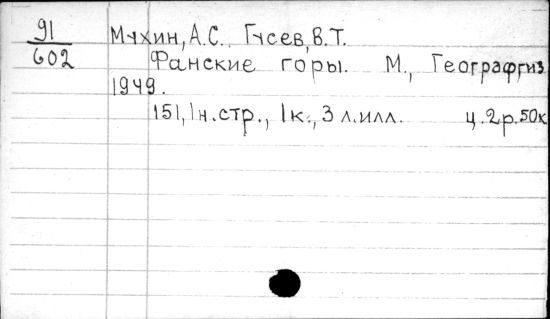 91
602
Мухин, А.С. Гусев, В.Т.
Фанские горы. М., Географгиз
1949.
151, 1н.стр., 1к., 3 л.илл. ц.2р.50к